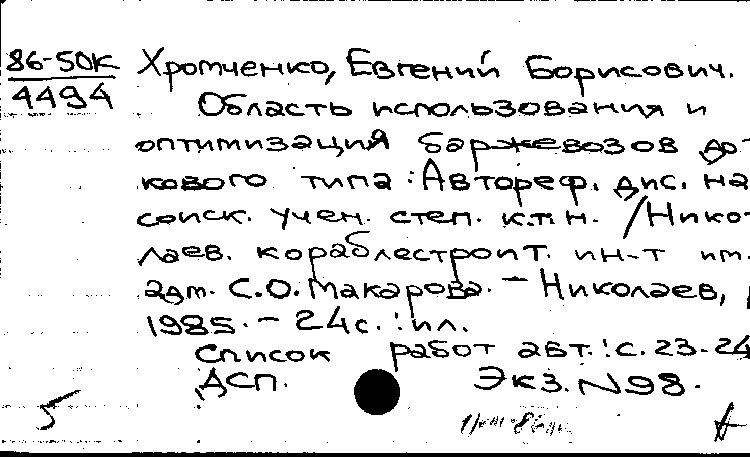 86-50К
4494
Хромченко, Евгений Борисович.
Область использования и
оптимизация баржевозов до-
кового типа: Автореф. дис. на
соиск. учен. степ. к.т.н. /Нико-
лаев. кораблестроит. ин-т им.
адм. С.О. Макарова. – Николаев,
1985. – 24с.: ил.
Список работ авт.: с. 23-24
ДСП. Экз. N98.
5